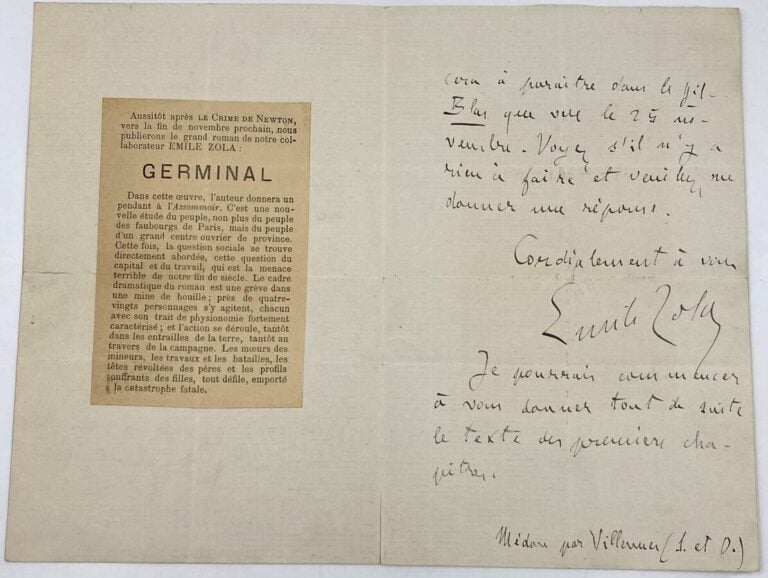 Aussitôt après LE CRIME DE NEWTON,
vers la fin de novembre prochain, nous
publierons le grand roman de notre col-
laborateur EMILE ZOLA :
GERMINAL
Dans cette œuvre, l'auteur donnera un
pendant à l'Assommoir. C'est une nou-
velle étude du peuple, non plus du peuple
des faubourgs de Paris, mais du peuple
d'un grand centre ouvrier de province.
Cette fois, la question sociale se trouve
directement abordée, cette question du
capital et du travail, qui est la menace
terrible de notre fin de siècle. Le cadre
dramatique du roman est une grève dans
une mine de houille ; près de quatre-
vingts personnages s'y agitent, chacun
avec son trait de physionomie fortement
caractérisé ; et l'action se déroule, tantôt
dans les entrailles de la terre, tantôt au
travers de la campagne. Les mœurs des
mineurs, les travaux et les batailles, les
têtes révoltées des pères et les profils
souffrants des filles, tout défile, emporté
à la catastrophe fatale.
cera à paraître dans le Gil-
Blas que vers le 25 no-
vembre. Voyez s'il n'y a
rien à faire et veuillez me
donner une réponse.
Cordialement à vous
Emile Zola
Je pourrais commencer
à vous donner tout de suite
le texte des premiers cha-
pitres.
Médan par Villennes (S. et O.)